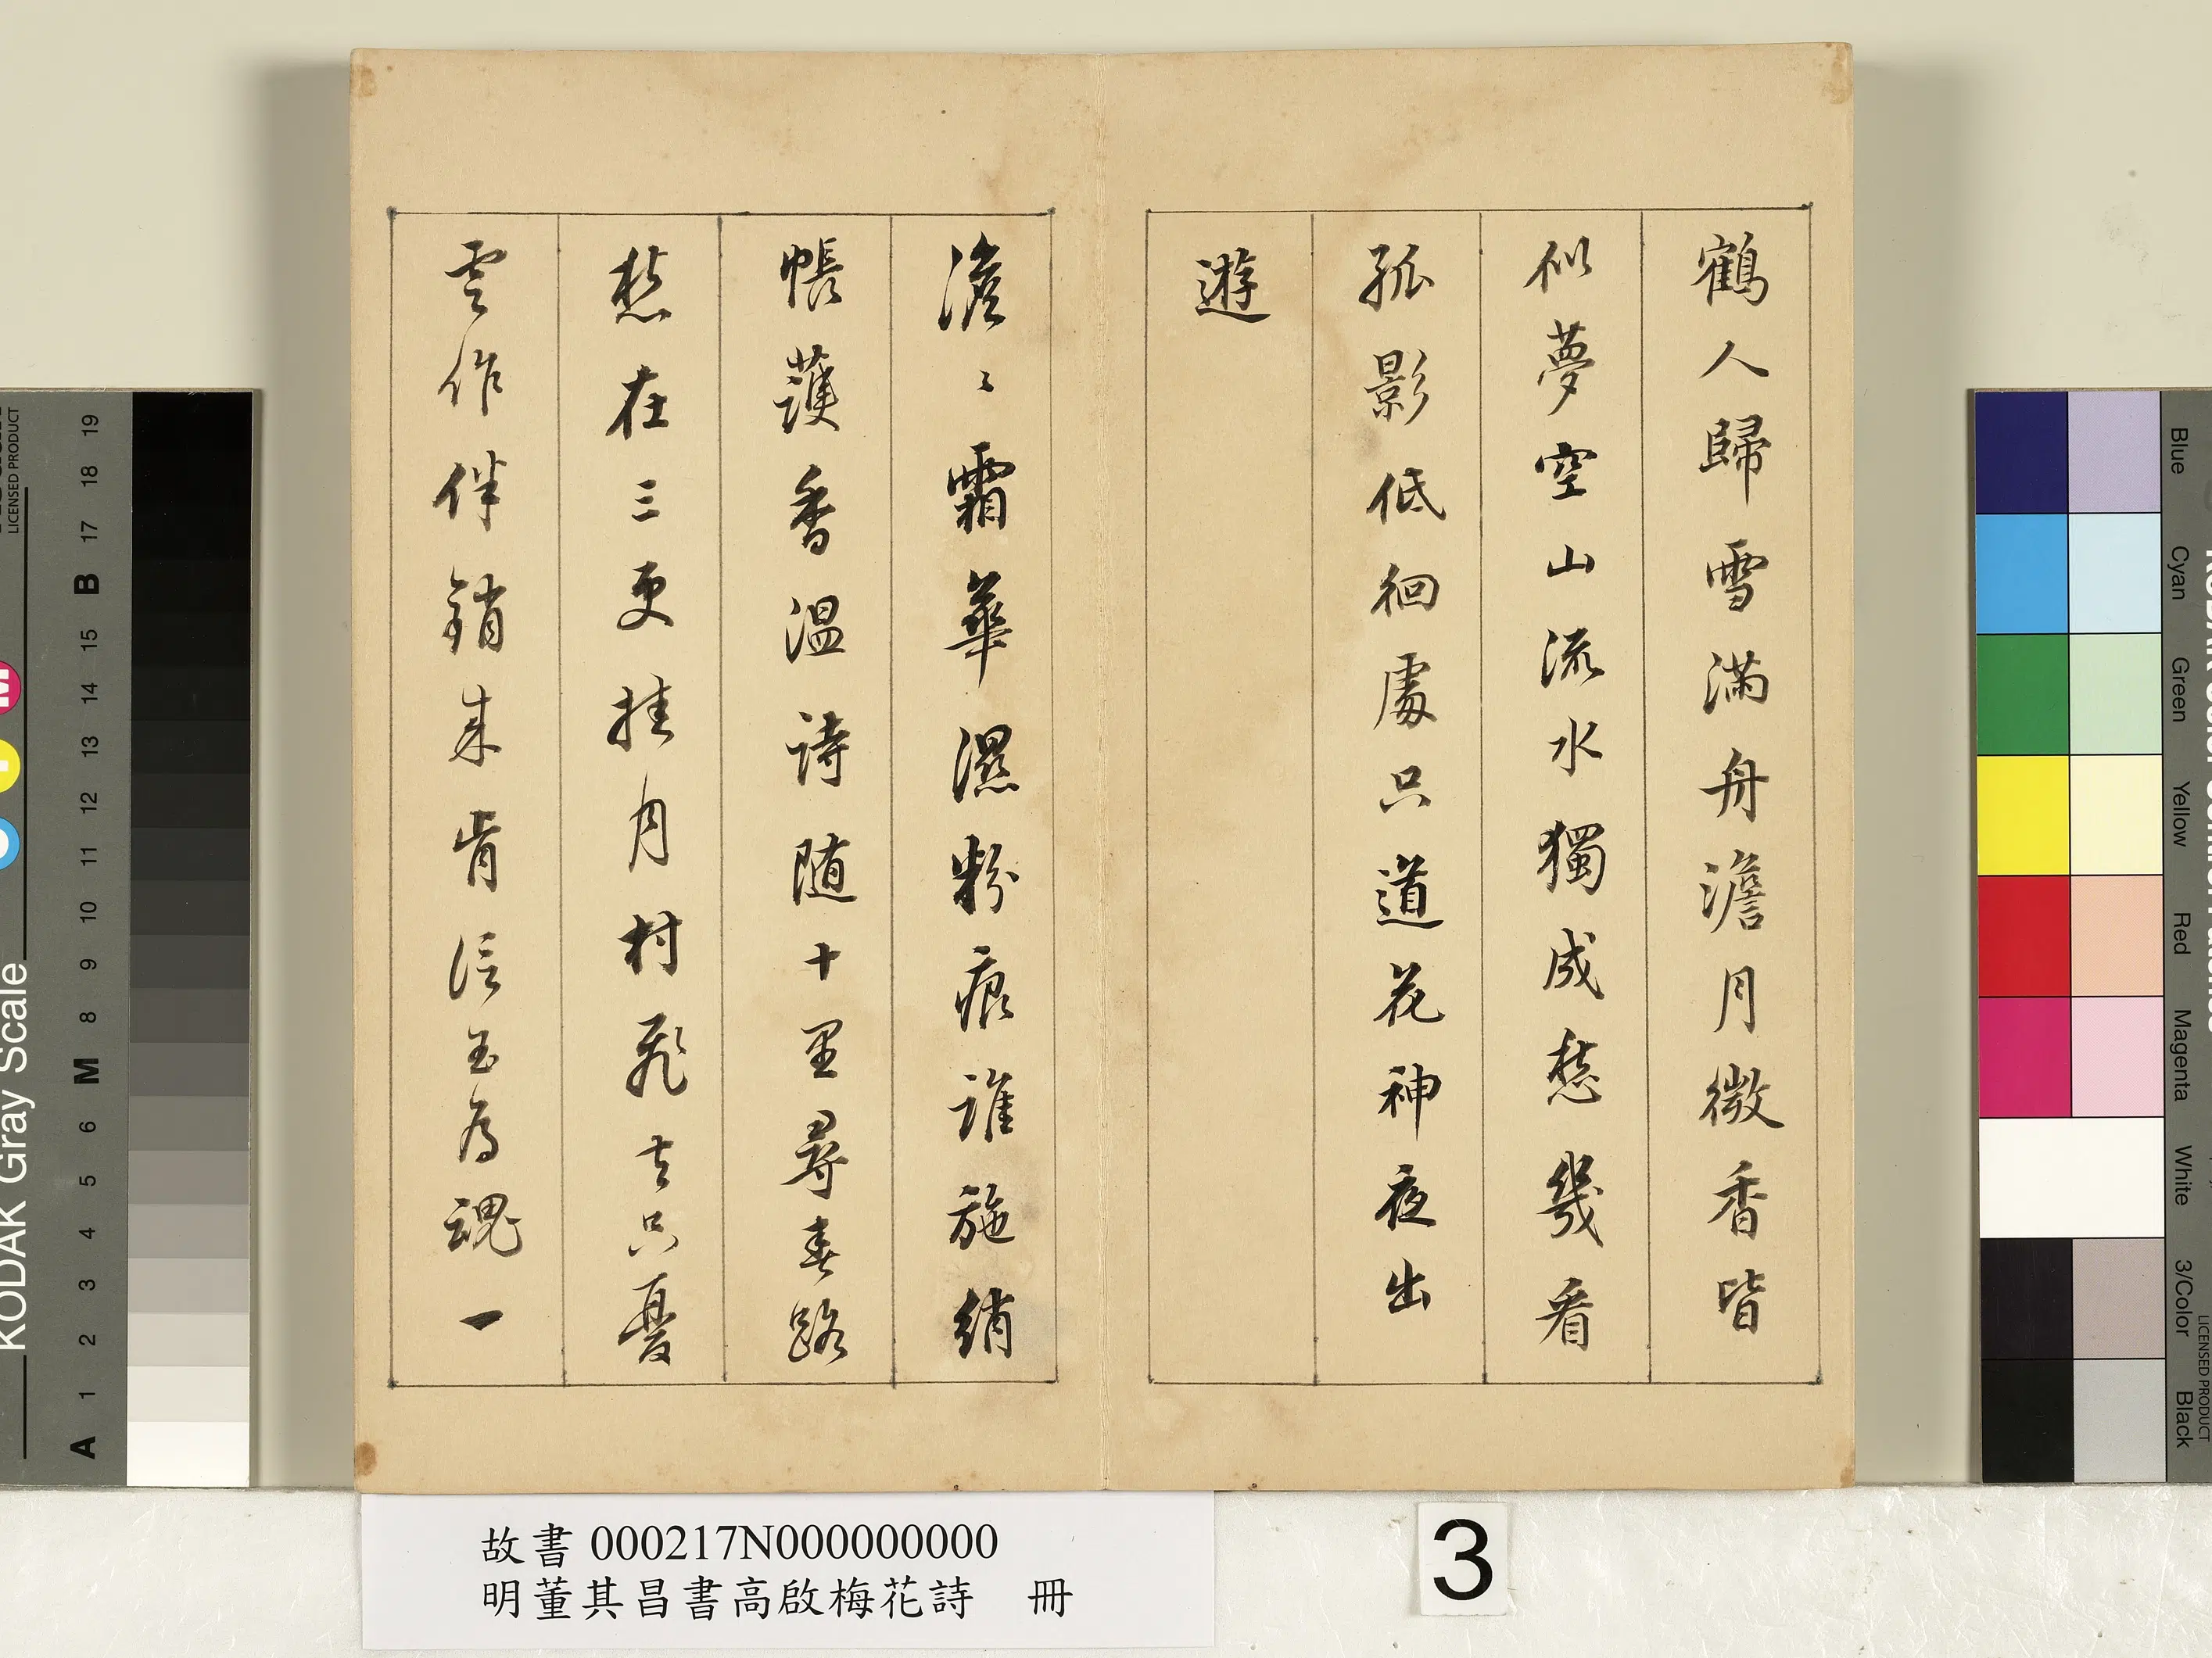 鶴人歸雪滿舟澹月微香皆
似夢空山流水獨成愁幾看
孤影低徊處只道花神夜出
遊
澹〻霜華濕粉痕誰施綃
帳護香温詩随十里尋春路
愁在三更挂月村飛去只憂
雲作伴銷來肯信玉為魂一
故書 000217N000000000
明董其昌書高啟梅花詩 冊
3
KODAK Gray Scale
LICENSED PRODUCT
A 1 2 3 4 5 6 M 8 9 10 11 12 13 14 15 B 17 18 19
Blue
Cyan
Green
Yellow
Red
Magenta
White
3/Color
Black
LICENSED PRODUCT